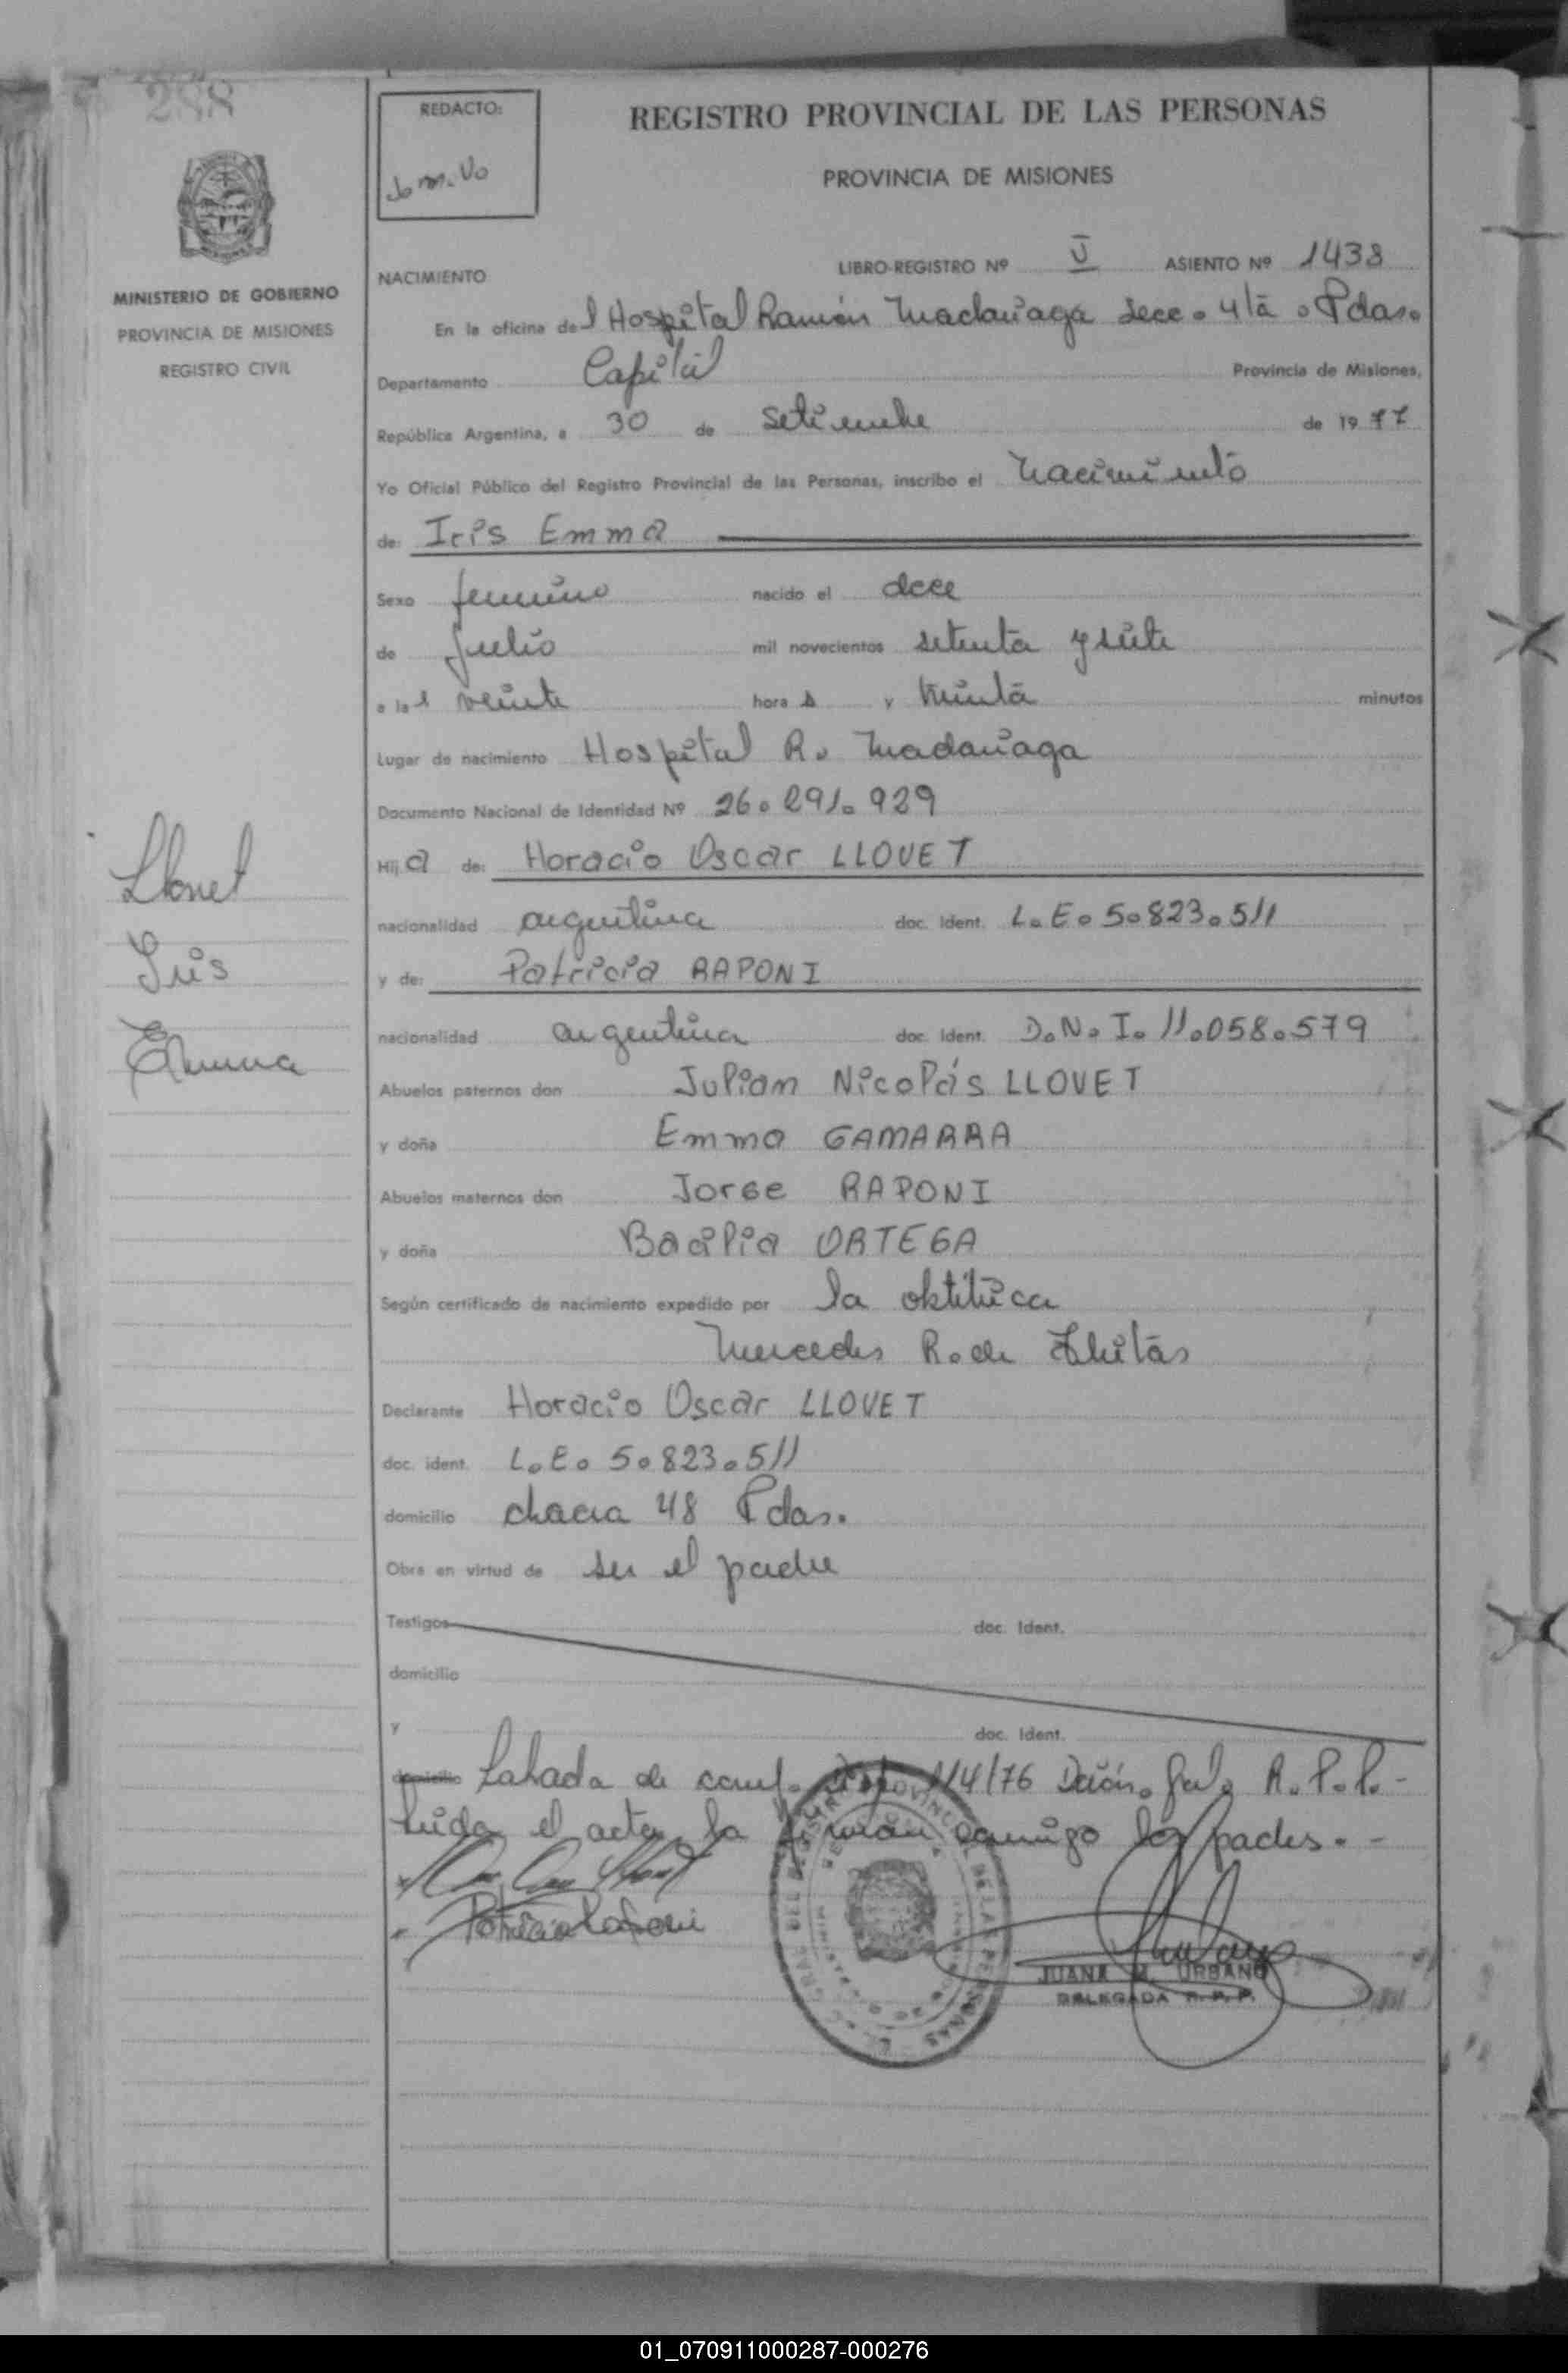 288
REDACTO:
REGISTRO PROVINCIAL DE LAS PERSONAS
PROVINCIA DE MISIONES
MINISTERIO DE GOBIERNO
PROVINCIA DE MISIONES
REGISTRO CIVIL
NACIMIENTO LIBRO-REGISTRO Nº V ASIENTO Nº 1438
En la oficina del Hospital Ramón Madariaga Secc. 4ta. Pdas.
Departamento Capital Provincia de Misiones,
República Argentina, a 30 de Setiembre de 1977
Yo Oficial Público del Registro Provincial de las Personas, inscribo el Nacimiento
de: Iris Emma
Sexo femenino nacido el doce
de Julio mil novecientos setenta y siete
a las veinte horas y treinta minutos
Lugar de nacimiento Hospital R. Madariaga
Documento Nacional de Identidad Nº 26.291.929
Hija de: Horacio Oscar LLOVET
nacionalidad argentina doc. Ident. L.E. 5.823.511
y de: Patricia RAPONI
nacionalidad argentina doc. Ident. D.N.I. 11.058.579
Abuelos paternos don Julian Nicolás LLOVET
y doña Emma GAMARRA
Abuelos maternos don Jorge RAPONI
y doña ORTEGA
Según certificado de nacimiento expedido por la obstétrica
Mercedes R. de
Declarante Horacio Oscar LLOVET
doc. ident. L.E. 5.823.511
domicilio chacra 48 Pdas.
Obra en virtud de ser el padre
Testigos doc. Ident.
domicilio
y doc. Ident.
domicilio de conf. Disp. 1/4/76 Dción. Gral. R.P.P.-
Leida el acta la firman conmigo los padres.-
Patricia Raponi
JUANA M. URBANO
DELEGADA R.P.P.
Llovet
Iris
Emma
01_070911000287-000276